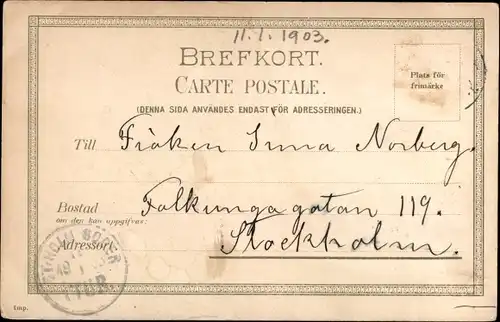 11.1.1903.
BREFKORT.
CARTE POSTALE.
(DENNA SIDA ANVÄNDES ENDAST FÖR ADRESSERINGEN.)
Plats för
frimärke
Till Fröken Inna Norberg.
Bostad Folkungagatan 119.
om den kan uppgifvas:
Adressort: Stockholm.
TUR
Imp.